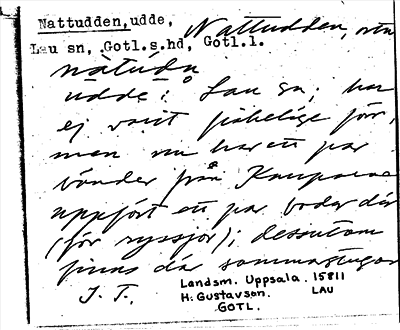 Nattudden, udde, Nattudden,
Lau sn, Gotl.s.hd, Gotl.l.
nàtúdn
udde i Lau sn; har
ej varit fiskeläge förr,
men nu har ett par
bönder från Kauparve
uppfört ett par bodar där
(för ryssjor); dessutom
finns där sommarstugor
J. T.
Landsm. Uppsala. 15811
H. Gustavson. LAU
GOTL.